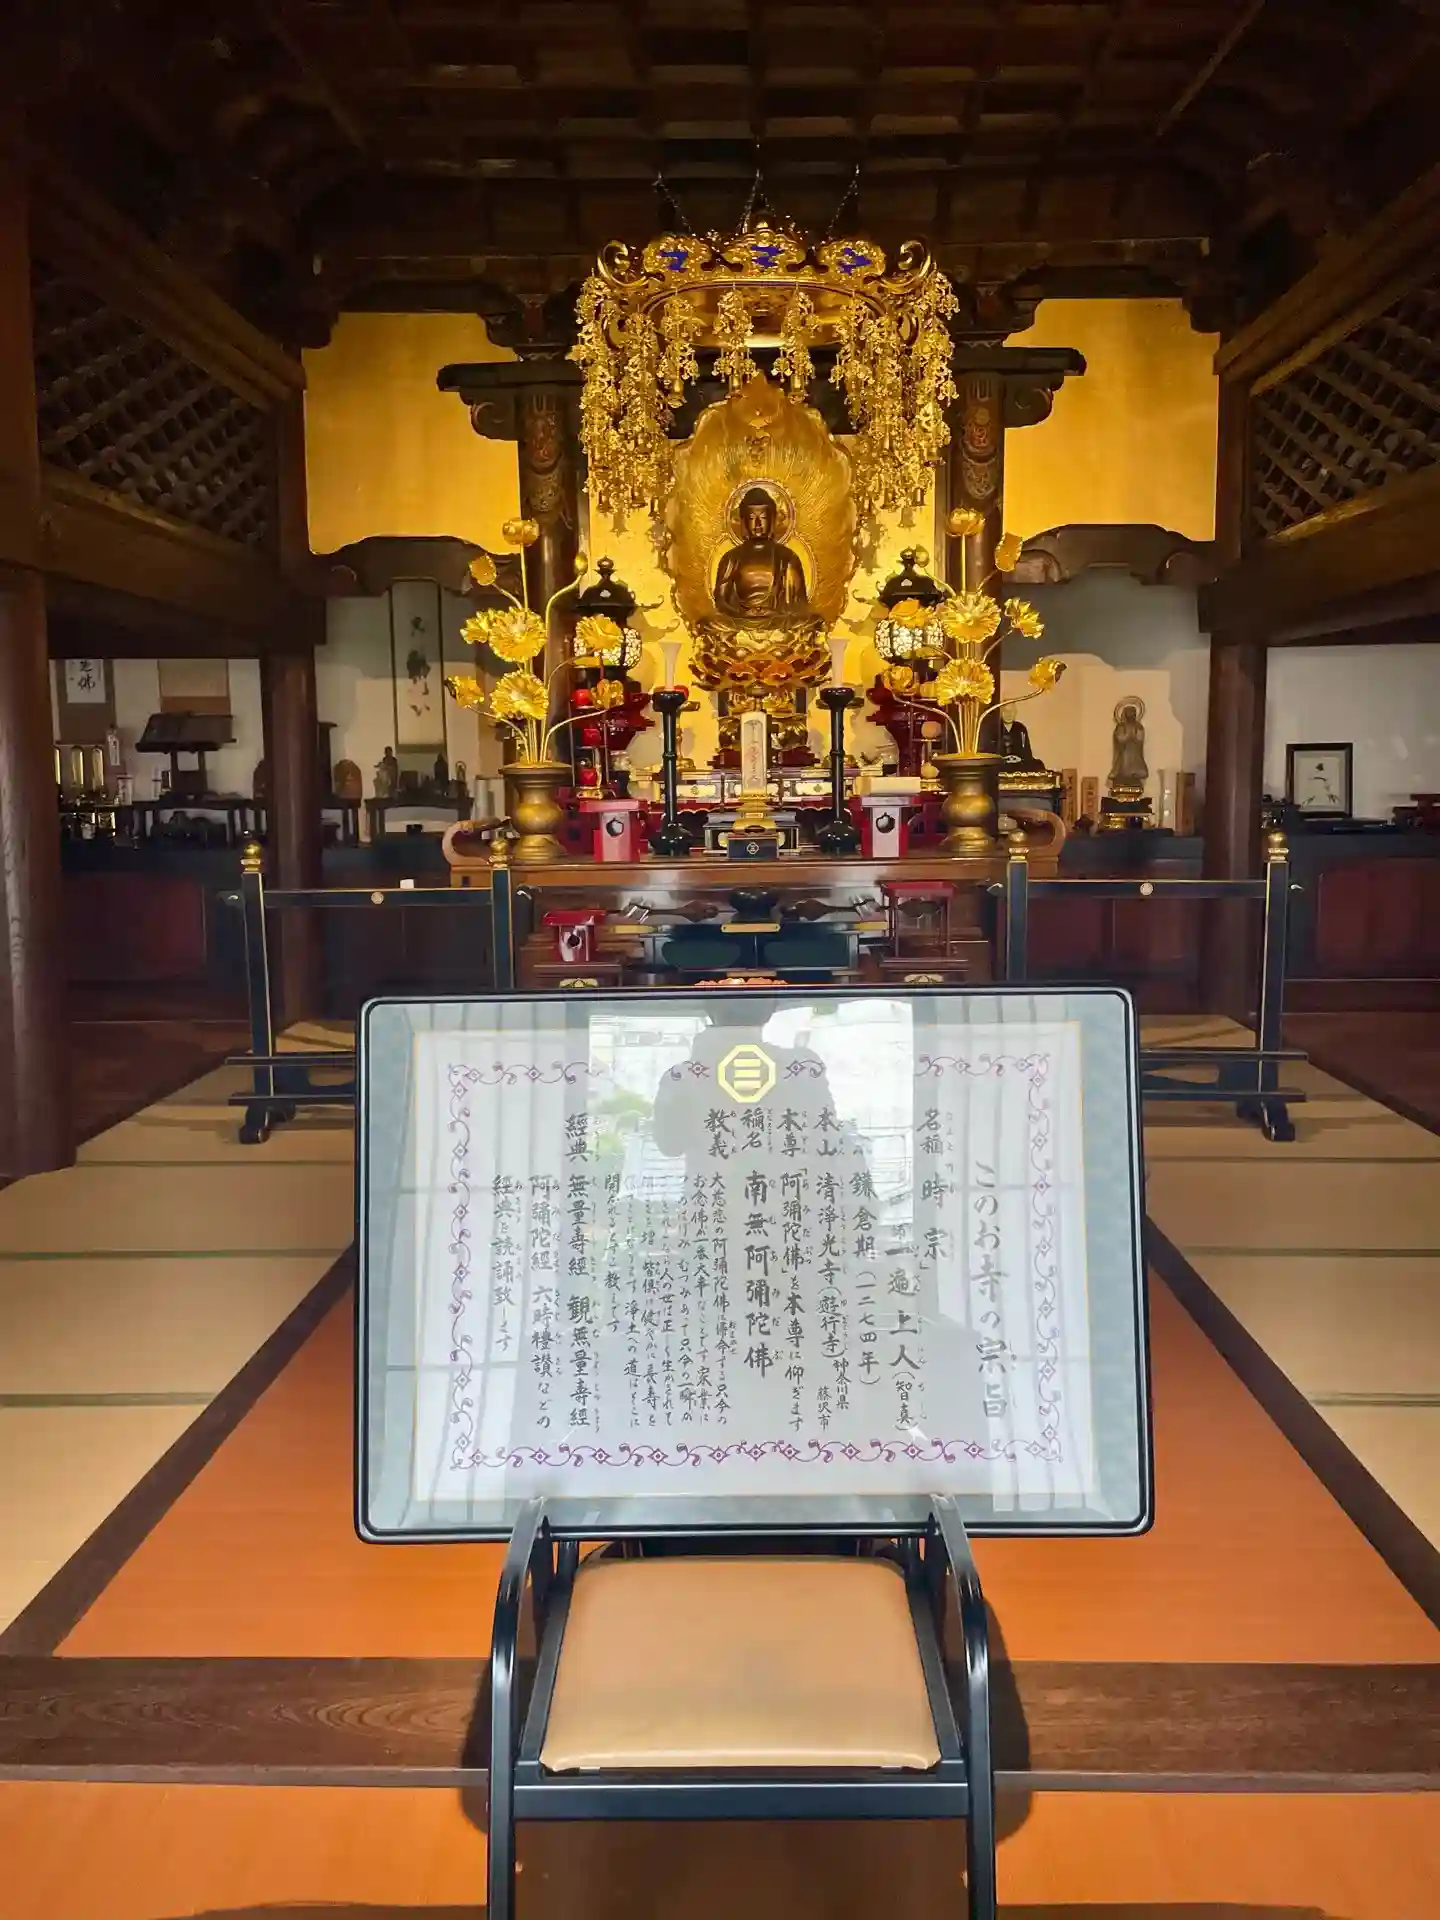 このお寺の宗旨
名稱 「時宗」
一遍上人(智真)
鎌倉期(一二七四年)
本山 清淨光寺(遊行寺)神奈川県 藤沢市
本尊 「阿彌陀佛」を本尊に仰ぎます
稱名 南無阿彌陀佛
教義 大慈悲の阿彌陀佛に帰命する只今の
お念佛が一番大事なことです 家業に
むつみあう只今の一瞬が
人の世は正しく生かされて
皆倶に健やかに長寿を
浄土への道はそこに
開かれると教えます
經典 無量壽經 観無量壽經
阿彌陀經 六時禮讃などの
經典を読誦致します